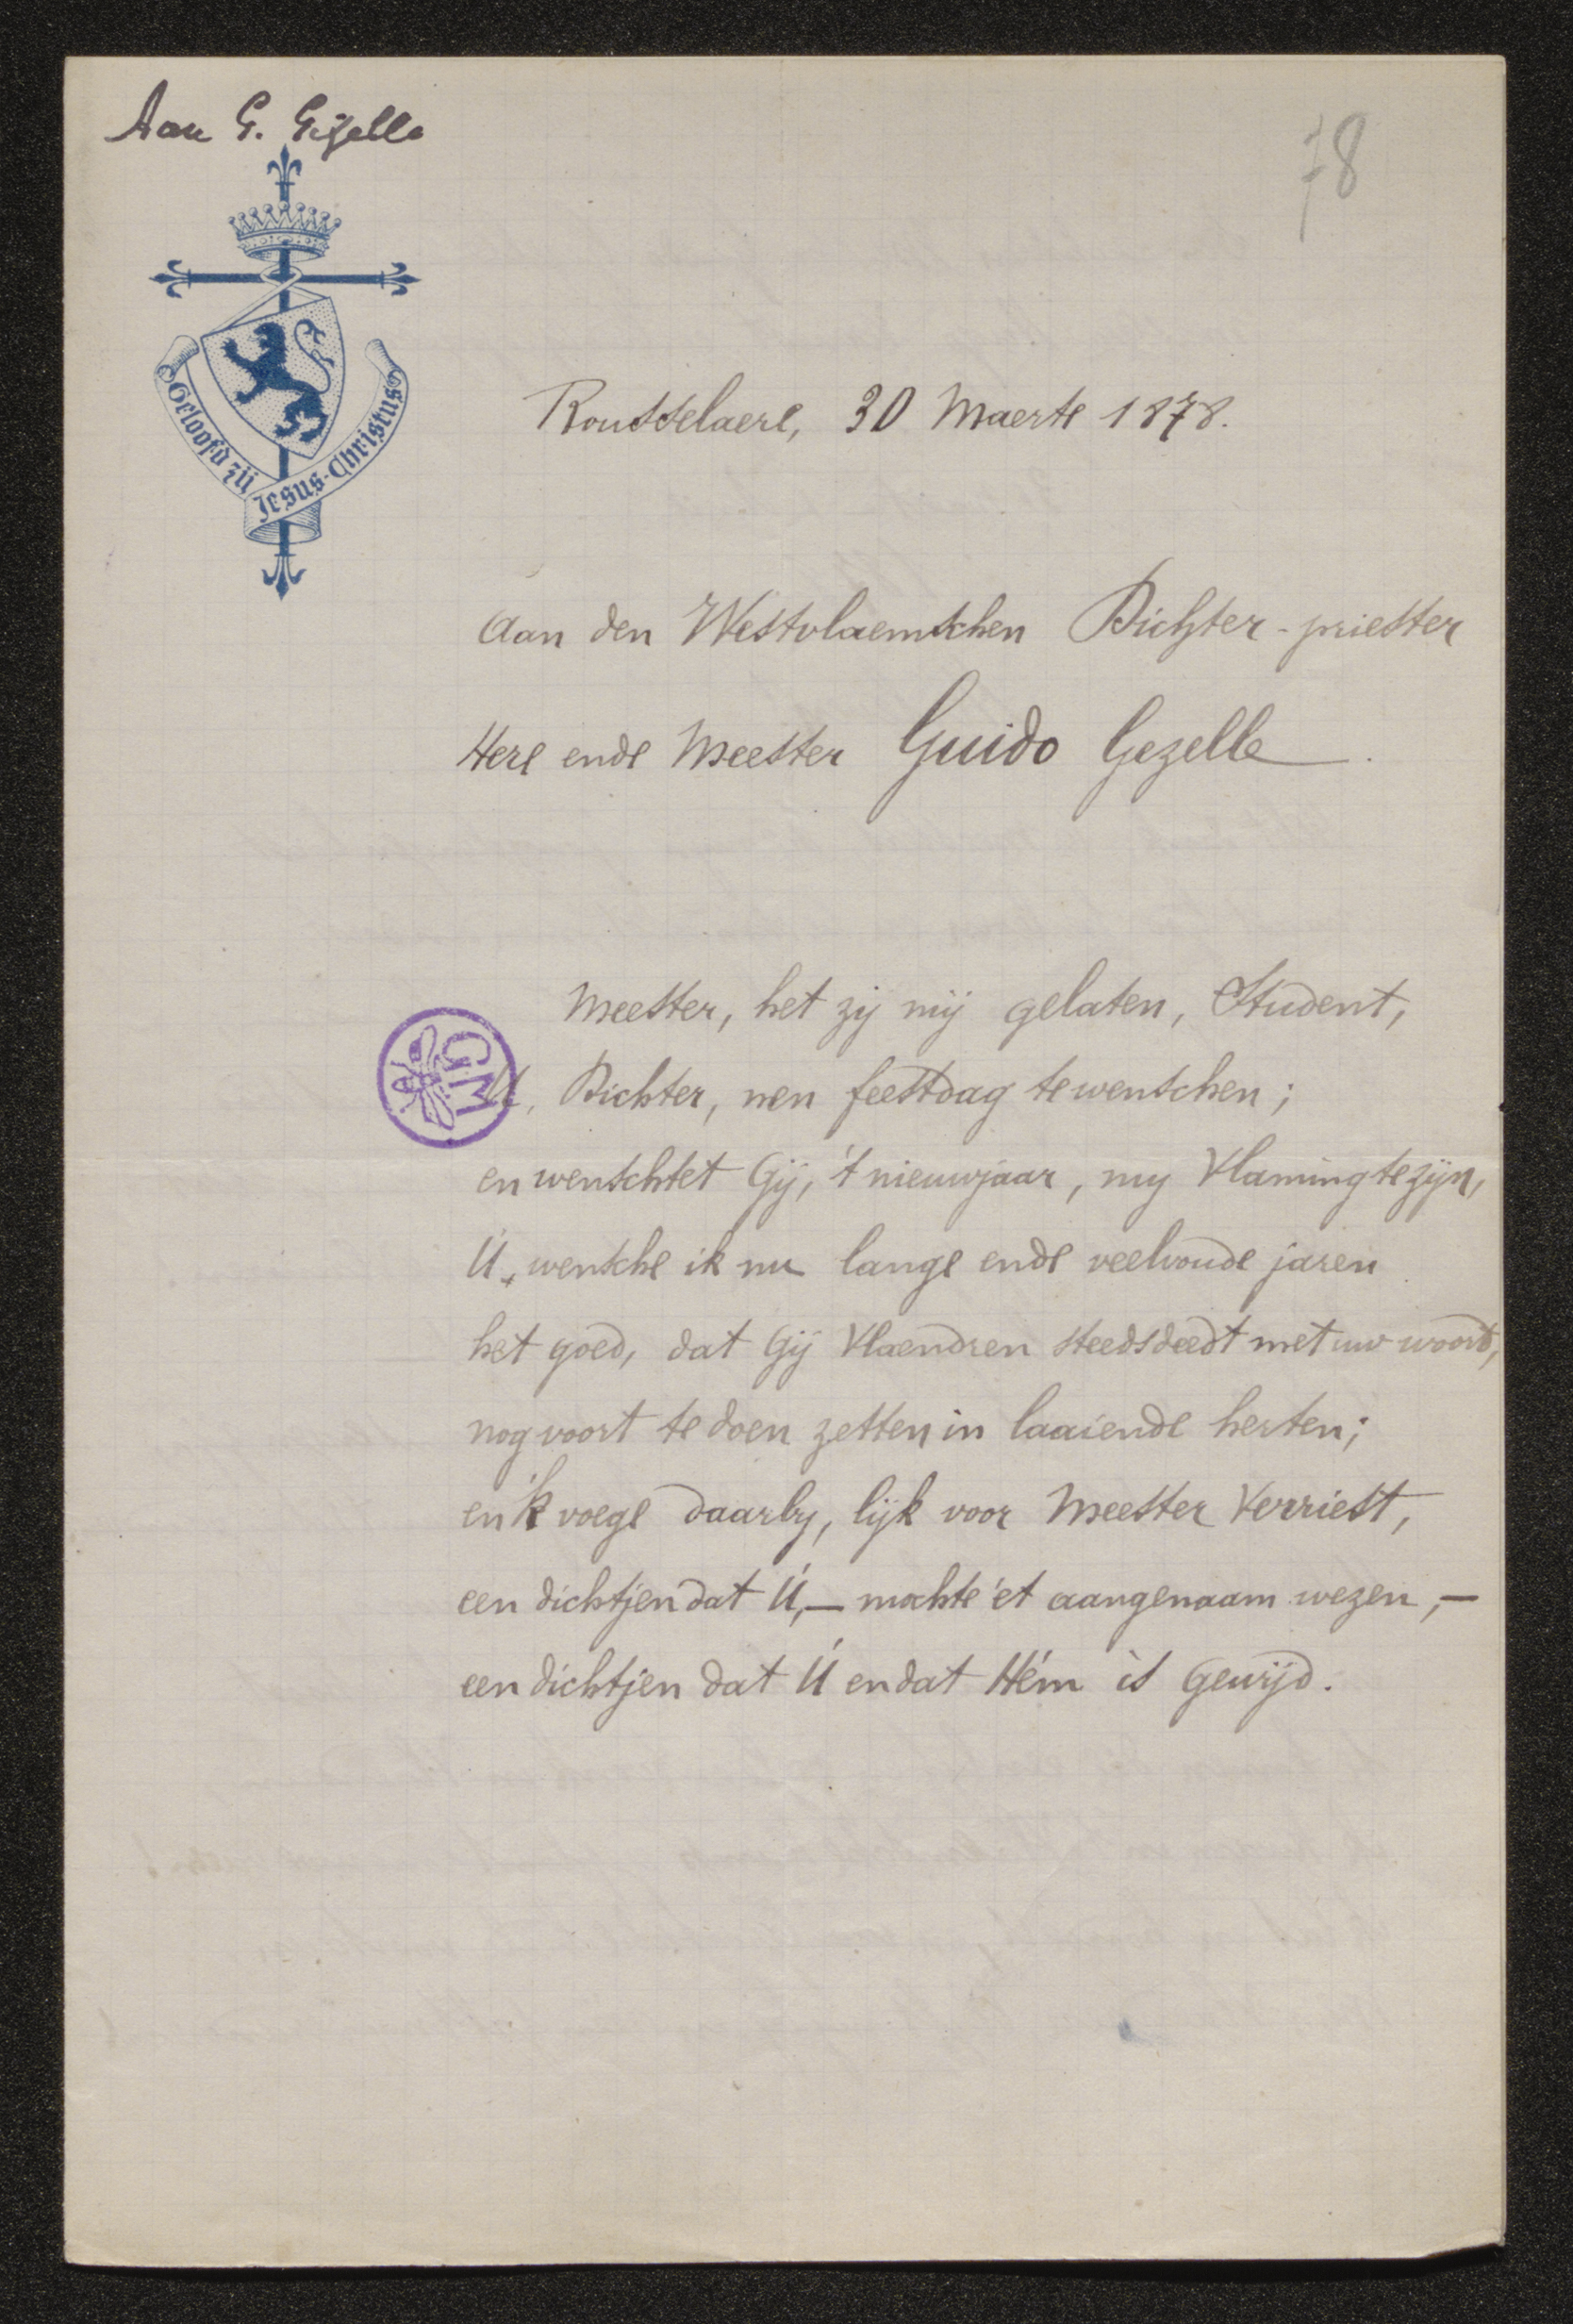 Aan G. Gezelle
78
Geloofd zij Jesus-Christus
Rousselaere, 30 Maerte 1878.
Aan den Westvlaemschen Dichter-priester
Here ende Meester Guido Gezelle.
Meester, het zij mij gelaten, Student,
GM
U, Dichter, nen feestdag te wenschen;
en wenschtet Gij, 't nieuwjaar, my Vlaming te zijn,
Ú, wensche ik nu lange ende veelvoude jaren
het goed, dat Gij Vlaendren steeds deedt met uw woord,
nog voort te doen zetten in laaiende herten;
en 'k voege daarby, lijk voor Meester Verriest,
een dichtjen dat Ú, — mochte 'et aangenaam wezen, —
een dichtjen dat Ú en dat Hém is gewijd.